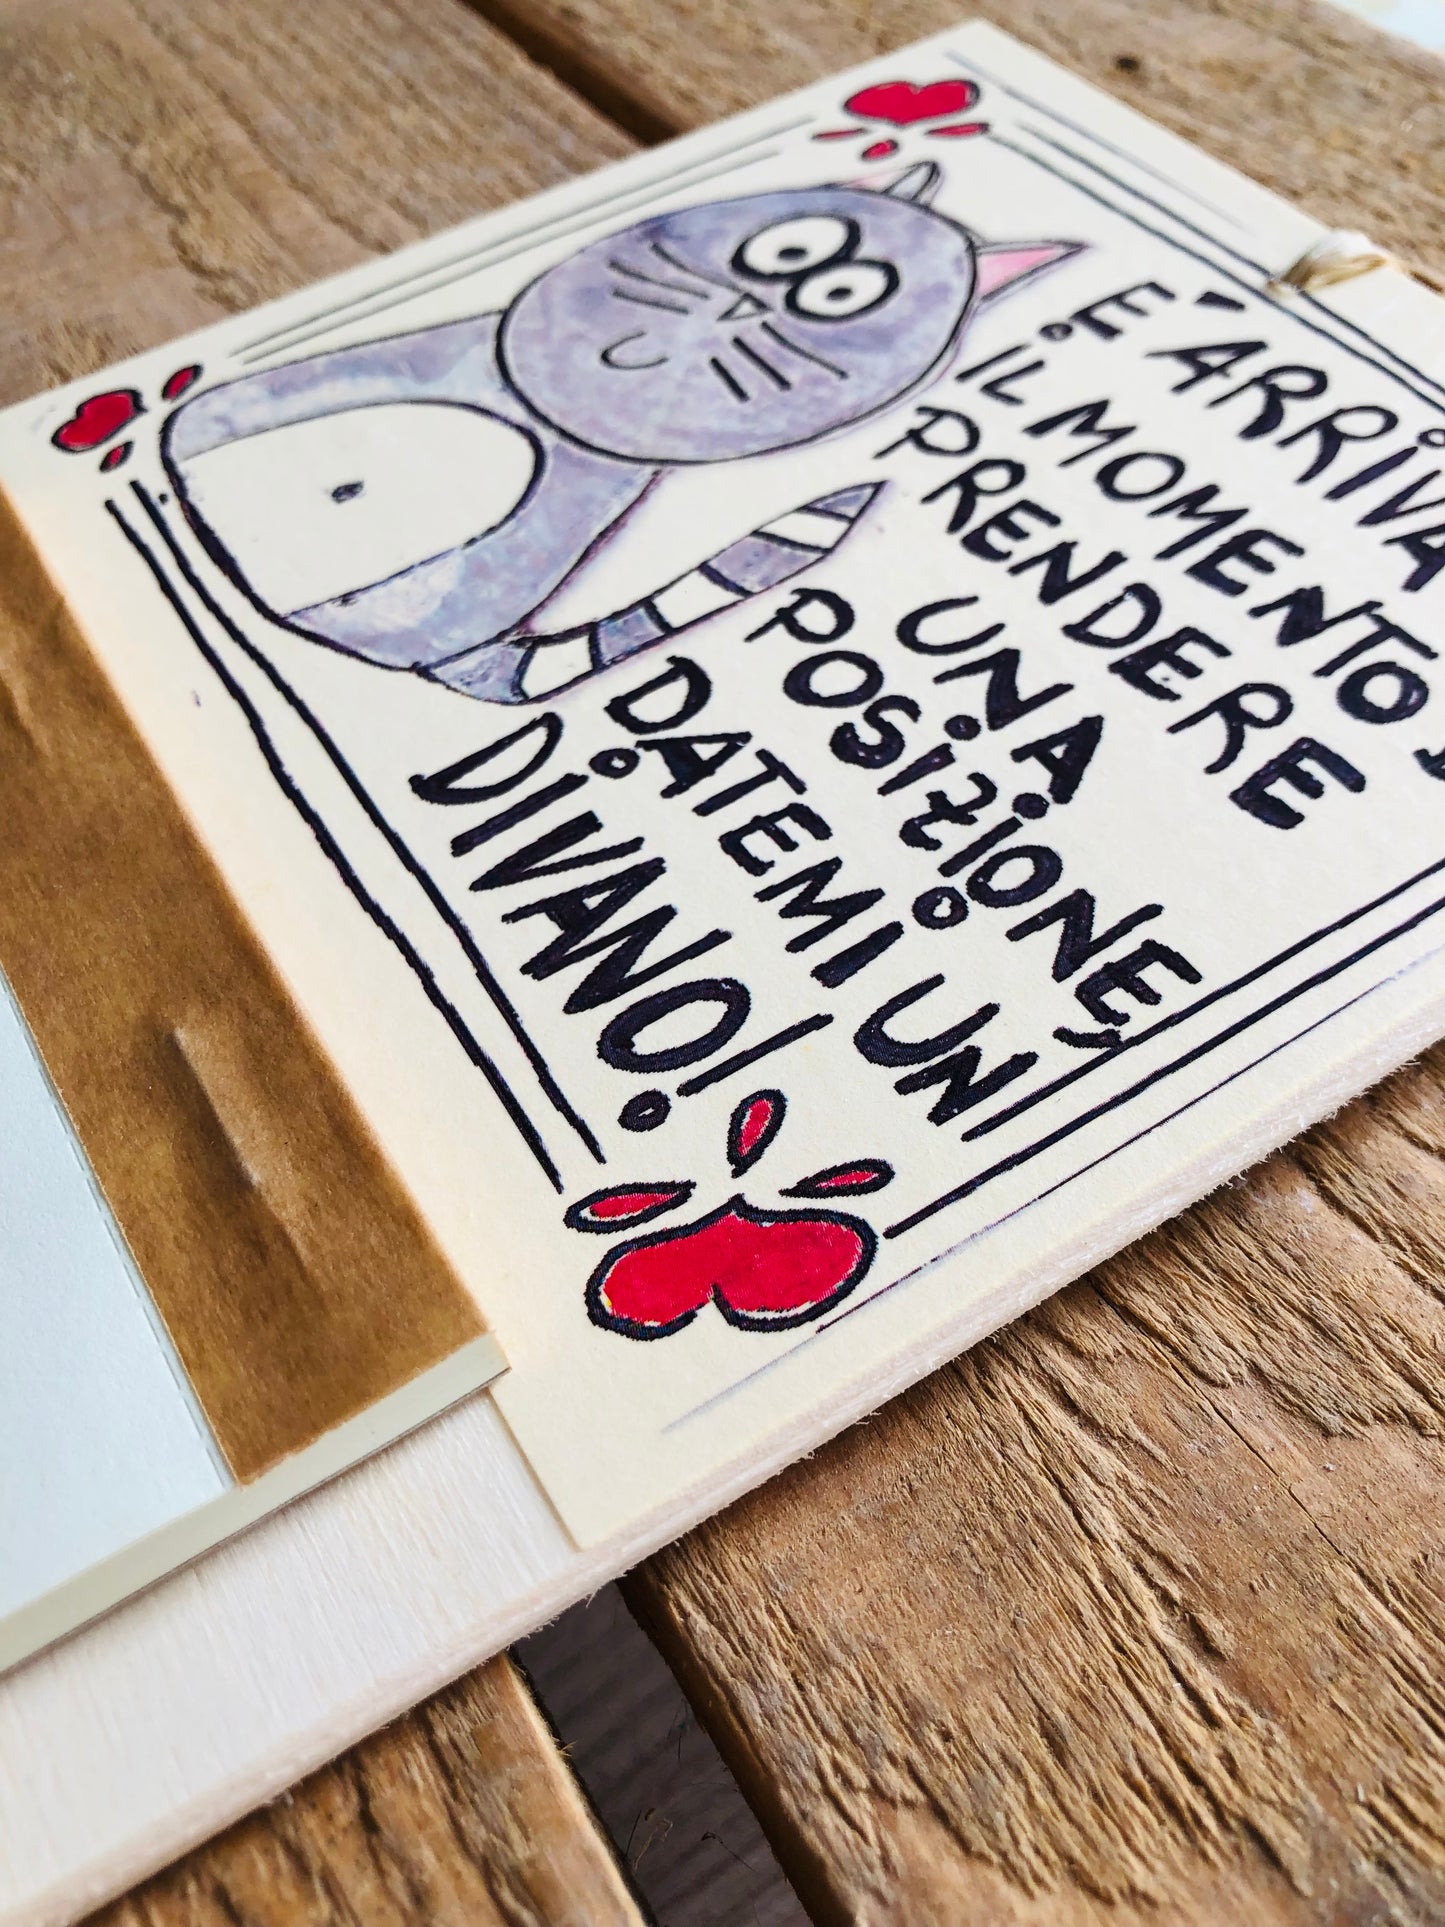 E' ARRIVA
IL MOMENTO
PRENDERE
UNA
POSIZIONE,
DATEMI UN
DIVANO!